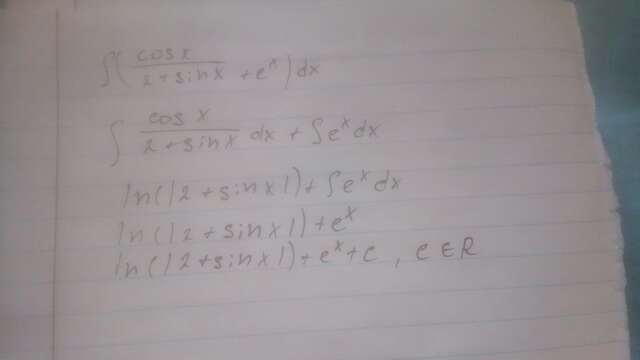 ∫( cos x / 2 + sin x + e^x ) dx
∫ cos x / 2 + sin x dx + ∫ e^x dx
ln(|2 + sin x|) + ∫ e^x dx
ln(|2 + sin x|) + e^x
ln(|2 + sin x|) + e^x + c , c ∈ R